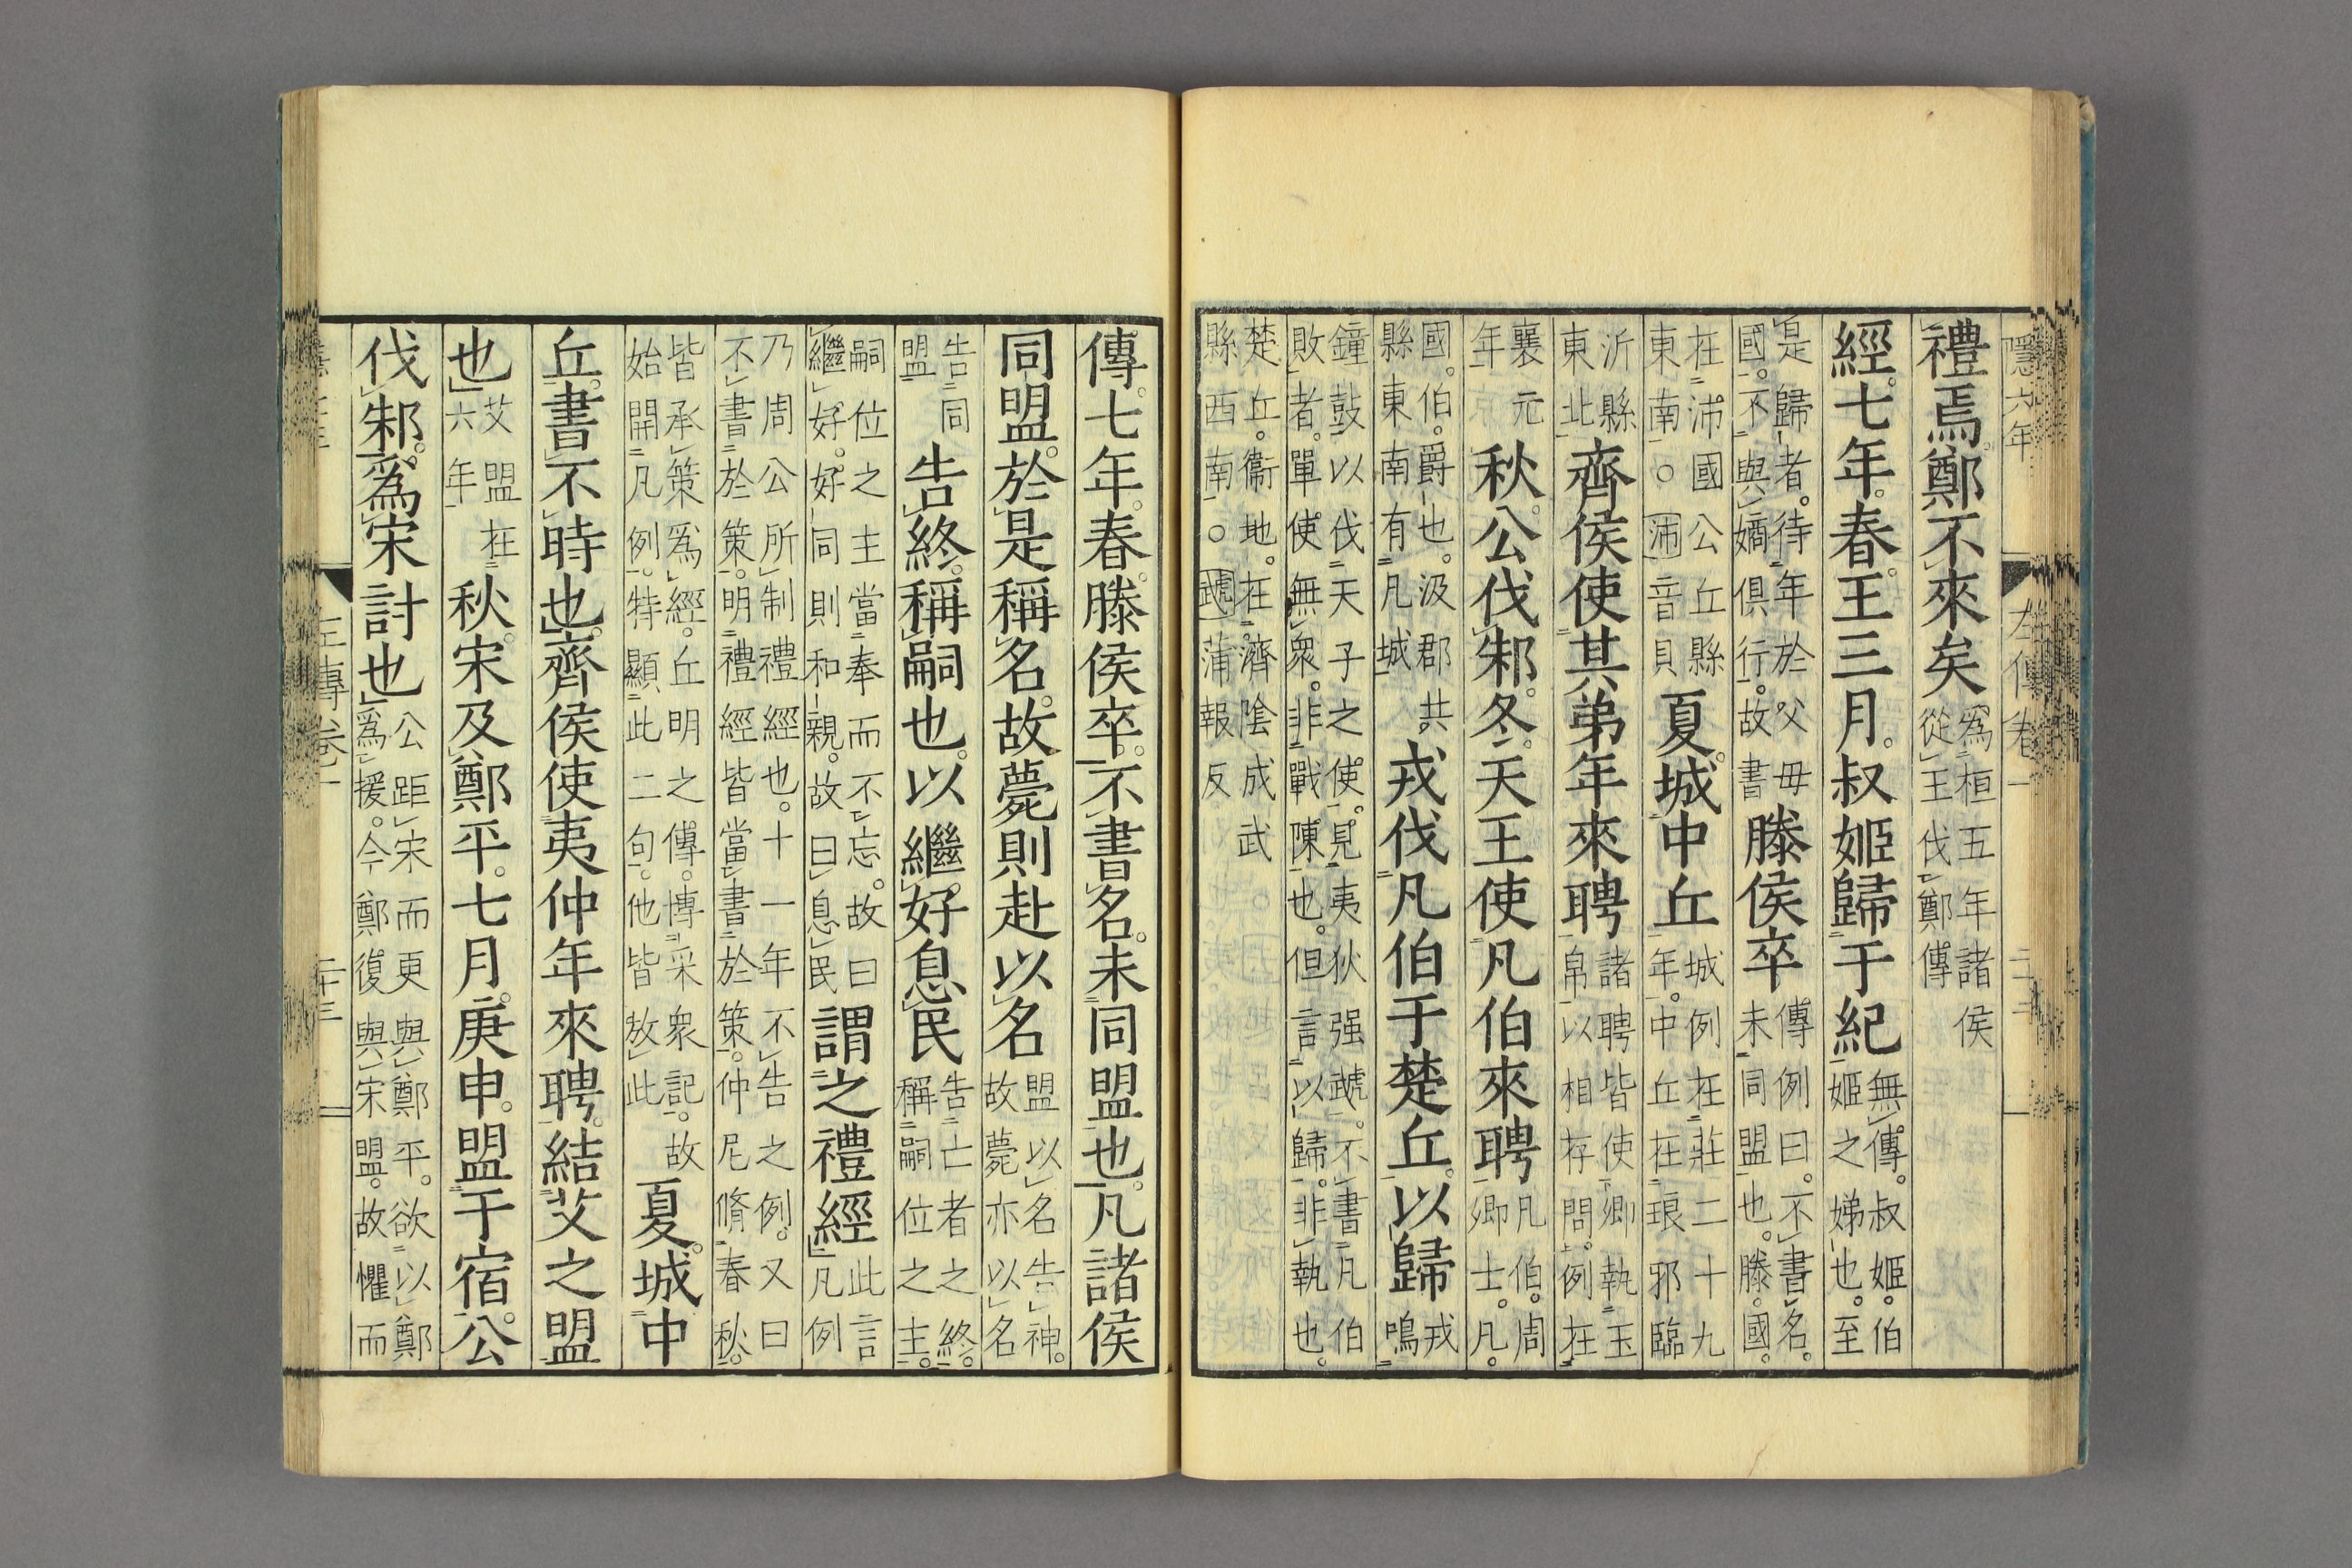 隱六年　左傳卷一
禮焉。鄭不來矣爲桓五年諸侯從王伐鄭傳
經。七年。春。王三月。叔姬歸于紀無傳。叔姬。伯姬之娣也。至
是歸者。待年於父母國。不與嫡俱行。故書滕侯卒傳例曰。不書名。未同盟也。滕。國。
在沛國公丘縣東南。○沛音貝夏。城中丘城例在莊二十九年。中丘在琅邪臨
沂縣東北齊侯使其弟年來聘諸聘皆使卿執玉帛以相存問。例在
襄元年秋。公伐邾。冬。天王使凡伯來聘凡伯。周卿士。凡。
國。伯。爵也。汲郡共縣東南有凡城戎伐凡伯于楚丘。以歸戎鳴
鐘鼓以伐天子之使。見夷狄强虣。不書凡伯敗者。單使無衆。非戰陳也。但言以歸。非執也。
楚丘。衞地。在濟陰成武縣西南。○虣蒲報反
傳。七年。春。滕侯卒。不書名。未同盟也。凡諸侯
同盟。於是稱名。故薨則赴以名盟以名告神。故薨亦以名
告同盟告終。稱嗣也。以繼好息民告亡者之終。稱嗣位之主。
嗣位之主當奉而不忘。故曰繼好。好同則和親。故曰息民謂之禮經此言凡例
乃周公所制禮經也。十一年不告之例。又曰不書於策。明禮經皆當書於策。仲尼脩春秋。
皆承策爲經。丘明之傳。博采衆記。故始開凡例。特顯此二句。他皆放此夏。城中
丘。書不時也。齊侯使夷仲年來聘。結艾之盟
也艾盟在六年秋。宋及鄭平。七月。庚申。盟于宿。公
伐邾。爲宋討也公距宋而更與鄭平。欲以鄭爲援。今鄭復與宋盟。故懼而